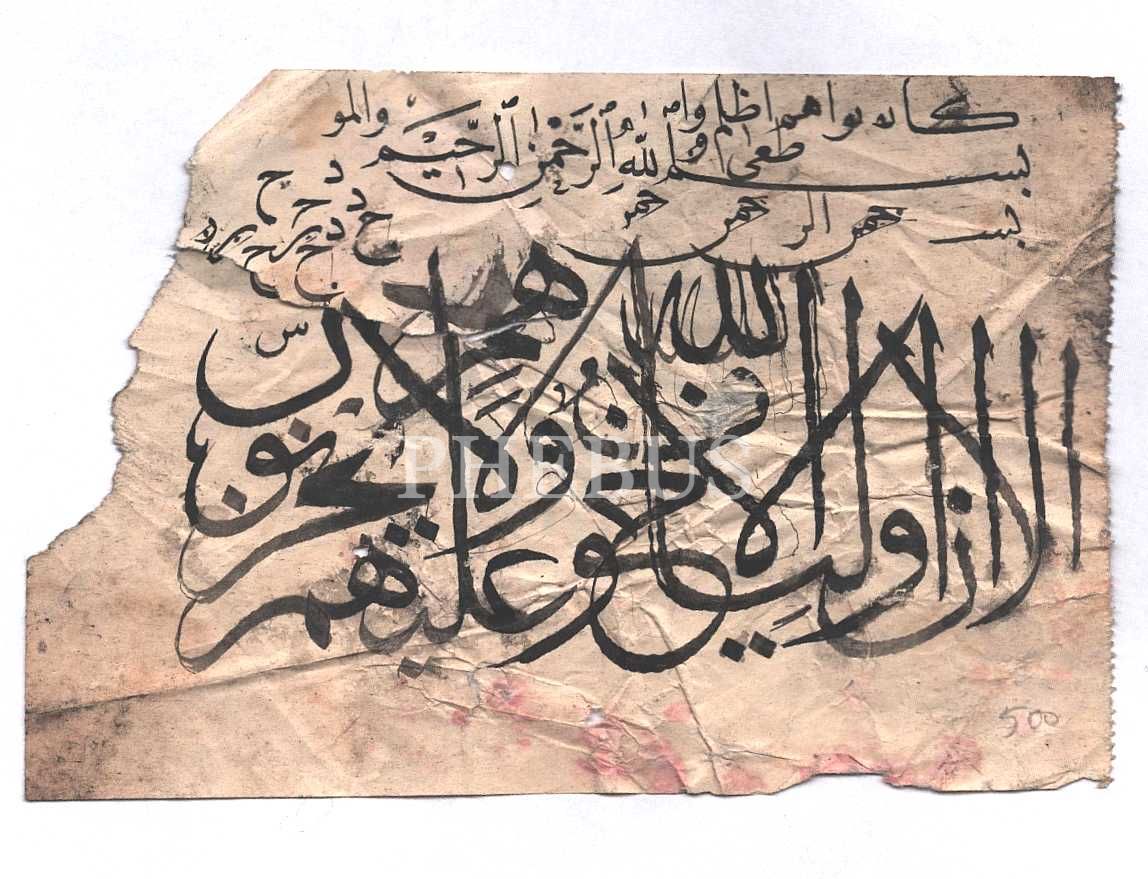 كانوا هم اظلم وا والمو
طغى
بسم الله الرحمن الرحيم
بسـ حمن الر حمن حمن
الا ان اوليا الله لا خوف عليهم ولا هم يحزنون
PHEBUS
500